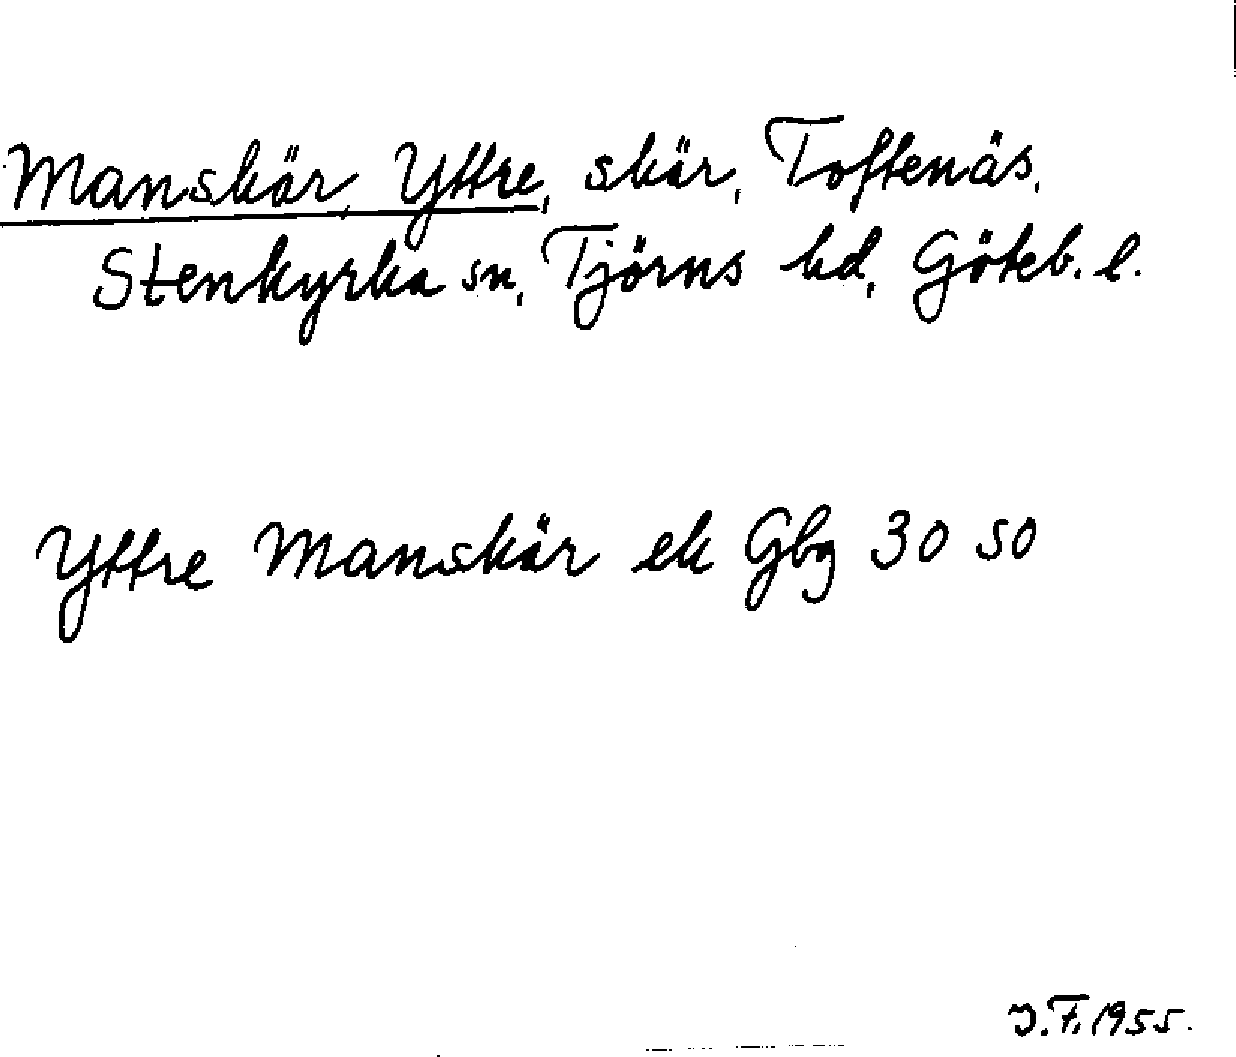 Manskär, Yttre, skär, Toftenäs,
Stenkyrka sn, Tjörns hd, Göteb. l.
Yttre Manskär ek Gbg 30 SO
J.F. 1955.